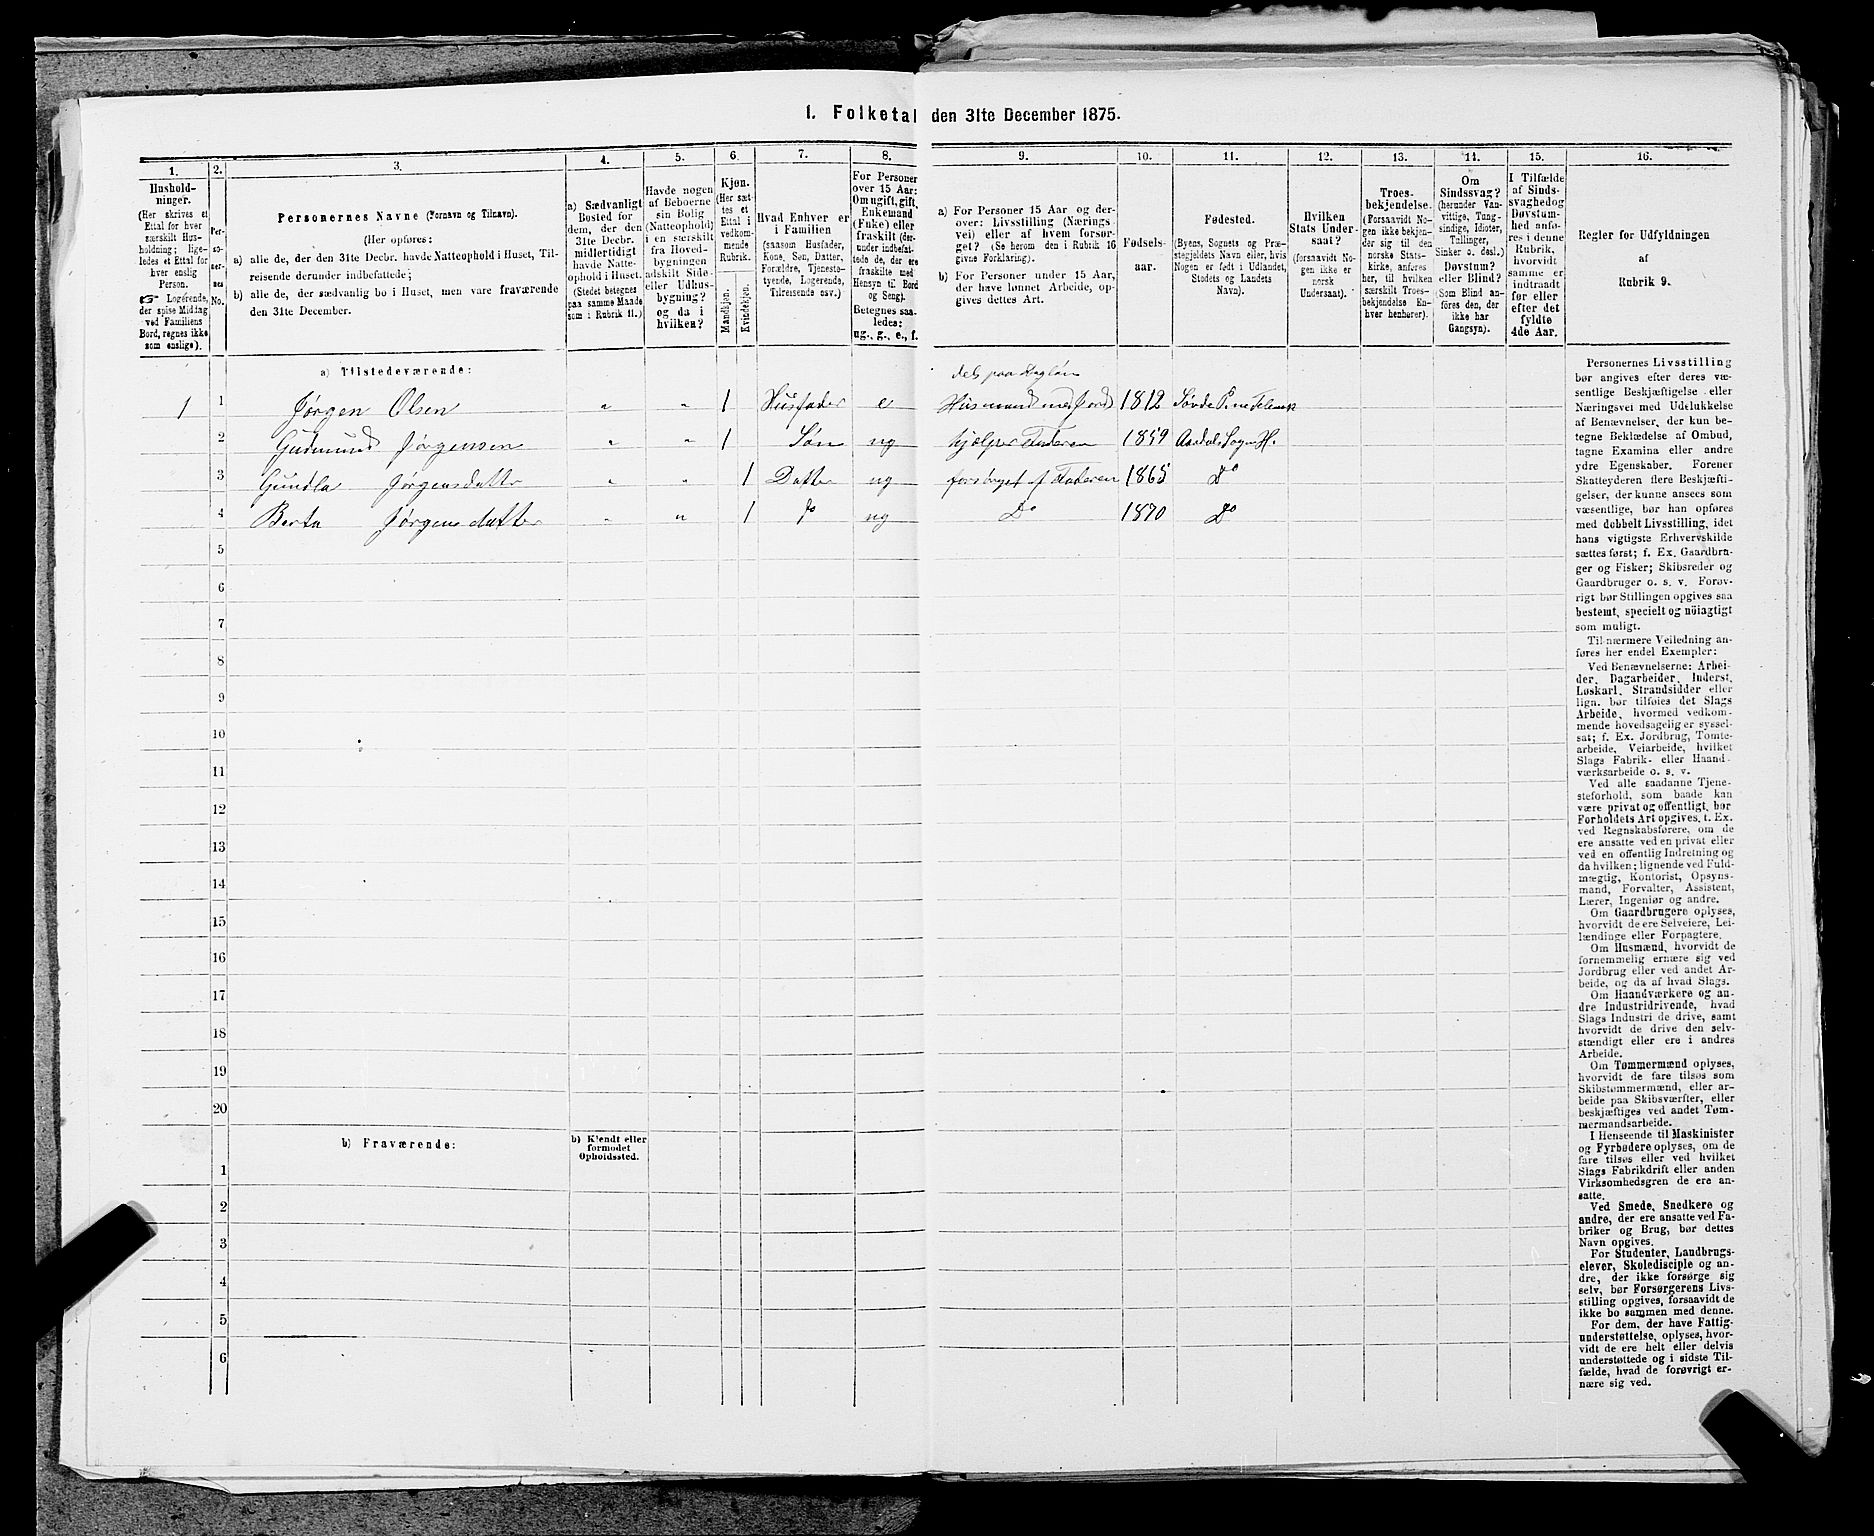 1. Folketal den 31te December 1875.
1.
Hushold-
ninger.
(Her skrives et
Ettal for hver
særskilt Hus-
holdning; lige-
ledes et Ettal for
hver enslig
Person.
Logerende,
der spise Middag
ved Familiens
Bord, regnes ikke
som enslige).
2.
Per-
so-
ner-
nes
No.
3.
Personernes Navne (Fornavn og Tilnavn).
(Her opføres:
a) alle de, der den 31te Decbr. havde Natteophold i Huset, Til-
reisende derunder indbefattede;
b) alle de, der sædvanlig bo i Huset, men vare fraværende
den 31te December.
4.
a) Sædvanligt
Bosted for
dem, der den
31te Decbr.
midlertidigt
havde Natte-
ophold i Huset.
(Stedet betegnes
paa samme Maade
som i Rubrik 11.)
5.
Havde nogen
af Beboerne
sin Bolig
(Natteophold)
i en særskilt
fra Hoved-
bygningen
adskilt Side-
eller Udhus-
bygning?
og da i
hvilken?
6.
Kjøn.
(Her sæt-
tes et
Ettal i
vedkom-
mende
Rubrik.
Mandkjøn.
Kvindekjøn.
7.
Hvad Enhver er
i Familien
(saasom Husfader,
Kone, Søn, Datter,
Forældre, Tjenestø-
tyende, Logerende,
Tilreisende osv.)
8.
For Personer
over 15 Aar:
Om ugift, gift,
Enkemand
(Enke) eller
fraskilt (der-
under indbefat-
tede de, der ere
fraskilte med
Hensyn til Bord
og Seng).
Betegnes saa-
ledes:
ug., g., e., f.
9.
a) For Personer 15 Aar og der-
over: Livsstilling (Nærings-
vei) eller af hvem forsør-
get? (Se herom den i Rubrik 16
givne Forklaring).
b) For Personer under 15 Aar,
der have lønnet Arbeide, op-
gives dettes Art.
10.
Fødsels-
aar.
11.
Fødested.
(Byens, Sognets og Præ-
stegjeldets Navn eller, hvis
Nogen er født i Udlandet,
Stedets og Landets
Navn).
12.
Hvilken
Stats Under-
saat?
(forsaavidt No-
gen ikke er
norsk
Undersaat).
13.
Troes-
bekjendelse.
(Forsaavidt No-
gen ikke bekjen-
der sig til den
norske Stats-
kirke, anføres
her, til hvilken
særskilt Troes-
bekjendelse En-
hver henhører).
14.
Om
Sindssvag?
(herunder Van-
vittige, Tung-
sindige, Idioter,
Tullinger,
Sinker o. desl.)
Døvstum?
eller Blind?
(Som Blind an-
føres den, der
ikke har
Gangsyn).
15.
I Tilfælde
af Sinds-
svaghed og
Døvstum-
hed anfø-
res i denne
Rubrik,
hvorvidt
samme er
indtraadt
før eller
efter det
fyldte
4de Aar.
16.
Regler for Udfyldningen
af
Rubrik 9.
a) Tilstedeværende:
dels paa Dagløn
1 1 Jørgen Olsen " " 1 Husfader e Husmand med Jord 1812
2 Gudmund Jørgensen " " 1 Søn ug hjelper Faderen 1859 Aardals Sogn H.
3 Gundla Jørgensdatter " " 1 Datter ug forsørget af Faderen 1865 Do
4 Berta Jørgensdatter " " 1 Do ug Do 1870 Do
5
6
7
8
9
10
11
12
13
14
15
16
17
18
19
20
b) Fraværende:
b) Kjendt eller
formodet
Opholdssted.
1
2
3
4
5
6
Personernes Livsstilling
bør angives efter deres væ-
sentlige Beskjæftigelse eller
Næringsvei med Udelukkelse
af Benævnelser, der kun be-
tegne Beklædelse af Ombud,
tagne Examina eller andre
ydre Egenskaber. Forener
Skatteyderen flere Beskjæfti-
gelser, der kunne ansees som
væsentlige, bør han opføres
med dobbelt Livsstilling, idet
hans vigtigste Erhvervskilde
sættes først; f. Ex. Gaardbru-
ger og Fisker; Skibsreder og
Gaardbruger o. s. v. Forøv-
rigt bør Stillingen opgives saa
bestemt, specielt og nöiagtigt
som muligt.
Til nærmere Veiledning an-
føres her endel Exempler:
Ved Benævnelserne: Arbei-
der, Dagarbeider, Inderst,
Løskarl, Strandsidder eller
lign. bør tilføies det Slags
Arbeide, hvormed vedkom-
mende hovedsagelig er syssel-
sat; f. Ex. Jordbrug, Tomte-
arbeide, Veiarbeide, hvilket
Slags Fabrik- eller Haand-
værksarbeide o. s. v.
Ved alle saadanne Tjene-
steforhold, som baade kan
være privat og offentligt, bør
Forholdets Art opgives, f. Ex.
ved Regnskabsførere, om de
ere ansatte ved en privat eller
ved en offentlig Indretning og
da hvilken; lignende ved Fuld-
mægtig, Kontorist, Opsyns-
mand, Forvalter, Assistent,
Lærer, Ingeniør og andre.
Om Gaardbrugere oplyses,
hvorvidt de ere Selveiere, Lei-
lændinge eller Forpagtere.
Om Husmænd, hvorvidt de
fornemmelig ernære sig ved
Jordbrug eller ved andet Ar-
beide, og da af hvad Slags.
Om Haandværkere og an-
dre Industridrivende, hvad
Slags Industri de drive, samt
hvorvidt de drive den selv-
stændigt eller ere i andres
Arbeide.
Om Tømmermænd oplyses,
hvorvidt de fare tilsøs som
Skibstømmermænd, eller ar-
beide paa Skibsværfter, eller
beskjæftiges ved andet Tøm-
mermandsarbeide.
I Henseende til Maskinister
og Fyrbødere oplyses, om de
fare tilsøs eller ved hvilket
Slags Fabrikdrift eller anden
Virksomhedsgren de ere an-
satte.
Ved Smede, Snedkere og
andre, der ere ansatte ved Fa-
briker og Brug, bør dettes
Navn opgives.
For Studenter, Landbrugs-
elever, Skoledisciple og an-
dre, der ikke forsørge sig
selv, bør Forsørgerens Livs-
stilling opgives, forsaavidt de
ikke bo sammen med denne.
For dem, der have Fattig-
understøttelse, oplyses, hvor-
vidt de ere helt eller delvis
understøttede og i sidste Til-
fælde, hvad de forøvrigt er-
nære sig ved.